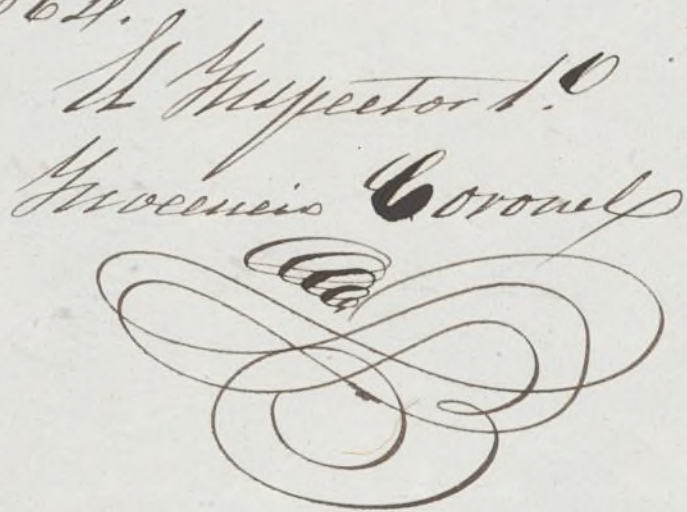 864.
El Inspector 1.º
Ynocencio Coronel